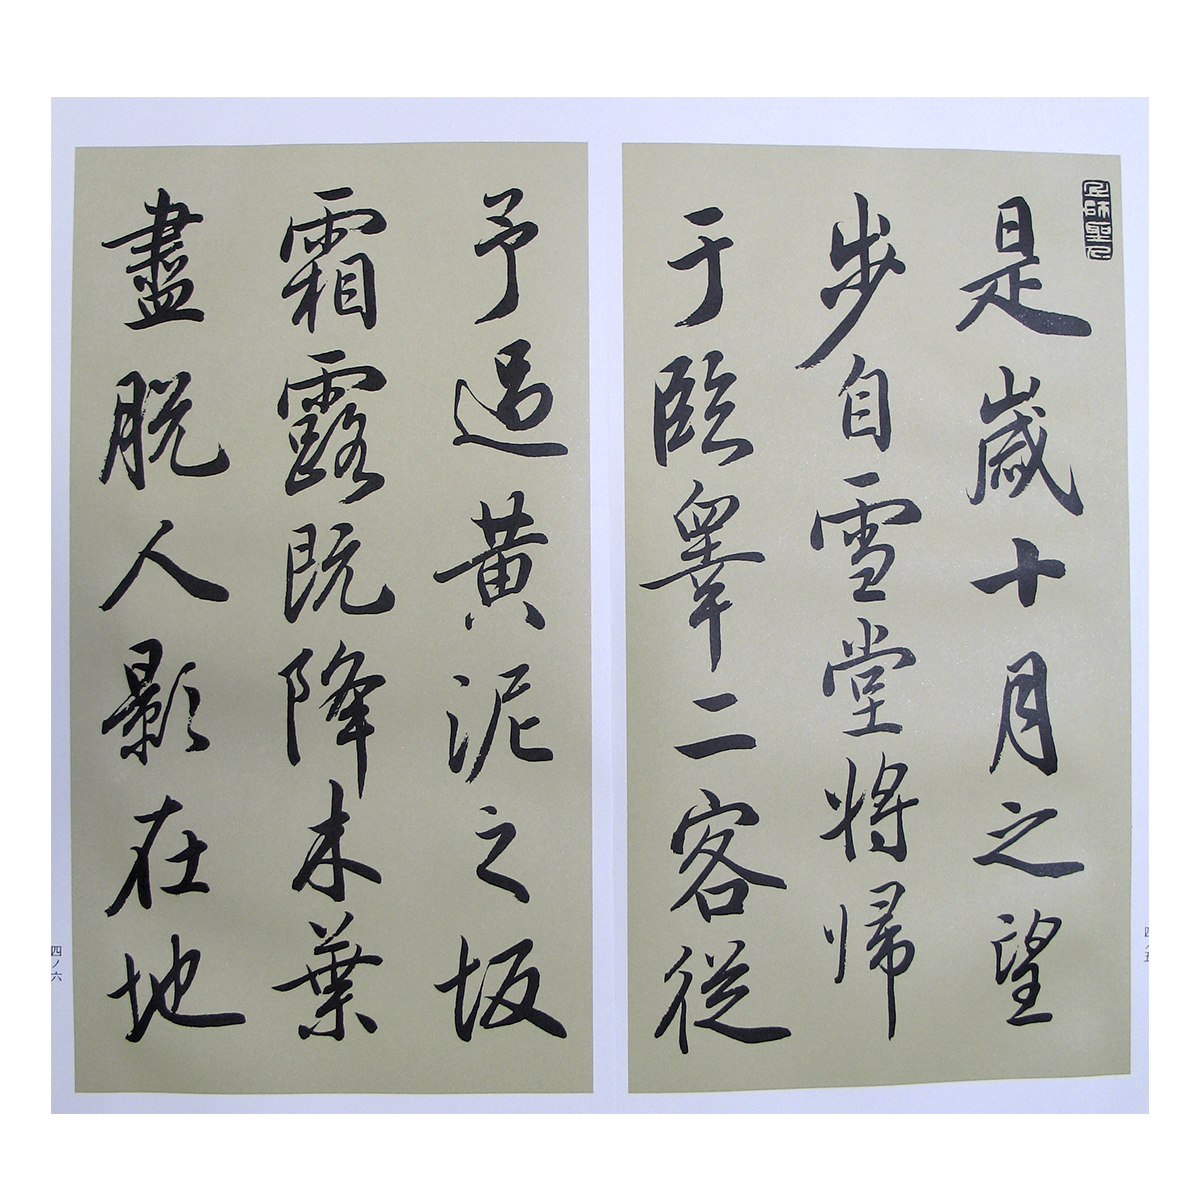 是歲十月之望
步自雪堂將歸
于臨皋二客從
予過黃泥之坂
霜露既降木葉
盡脫人影在地
四ノ五
四ノ六